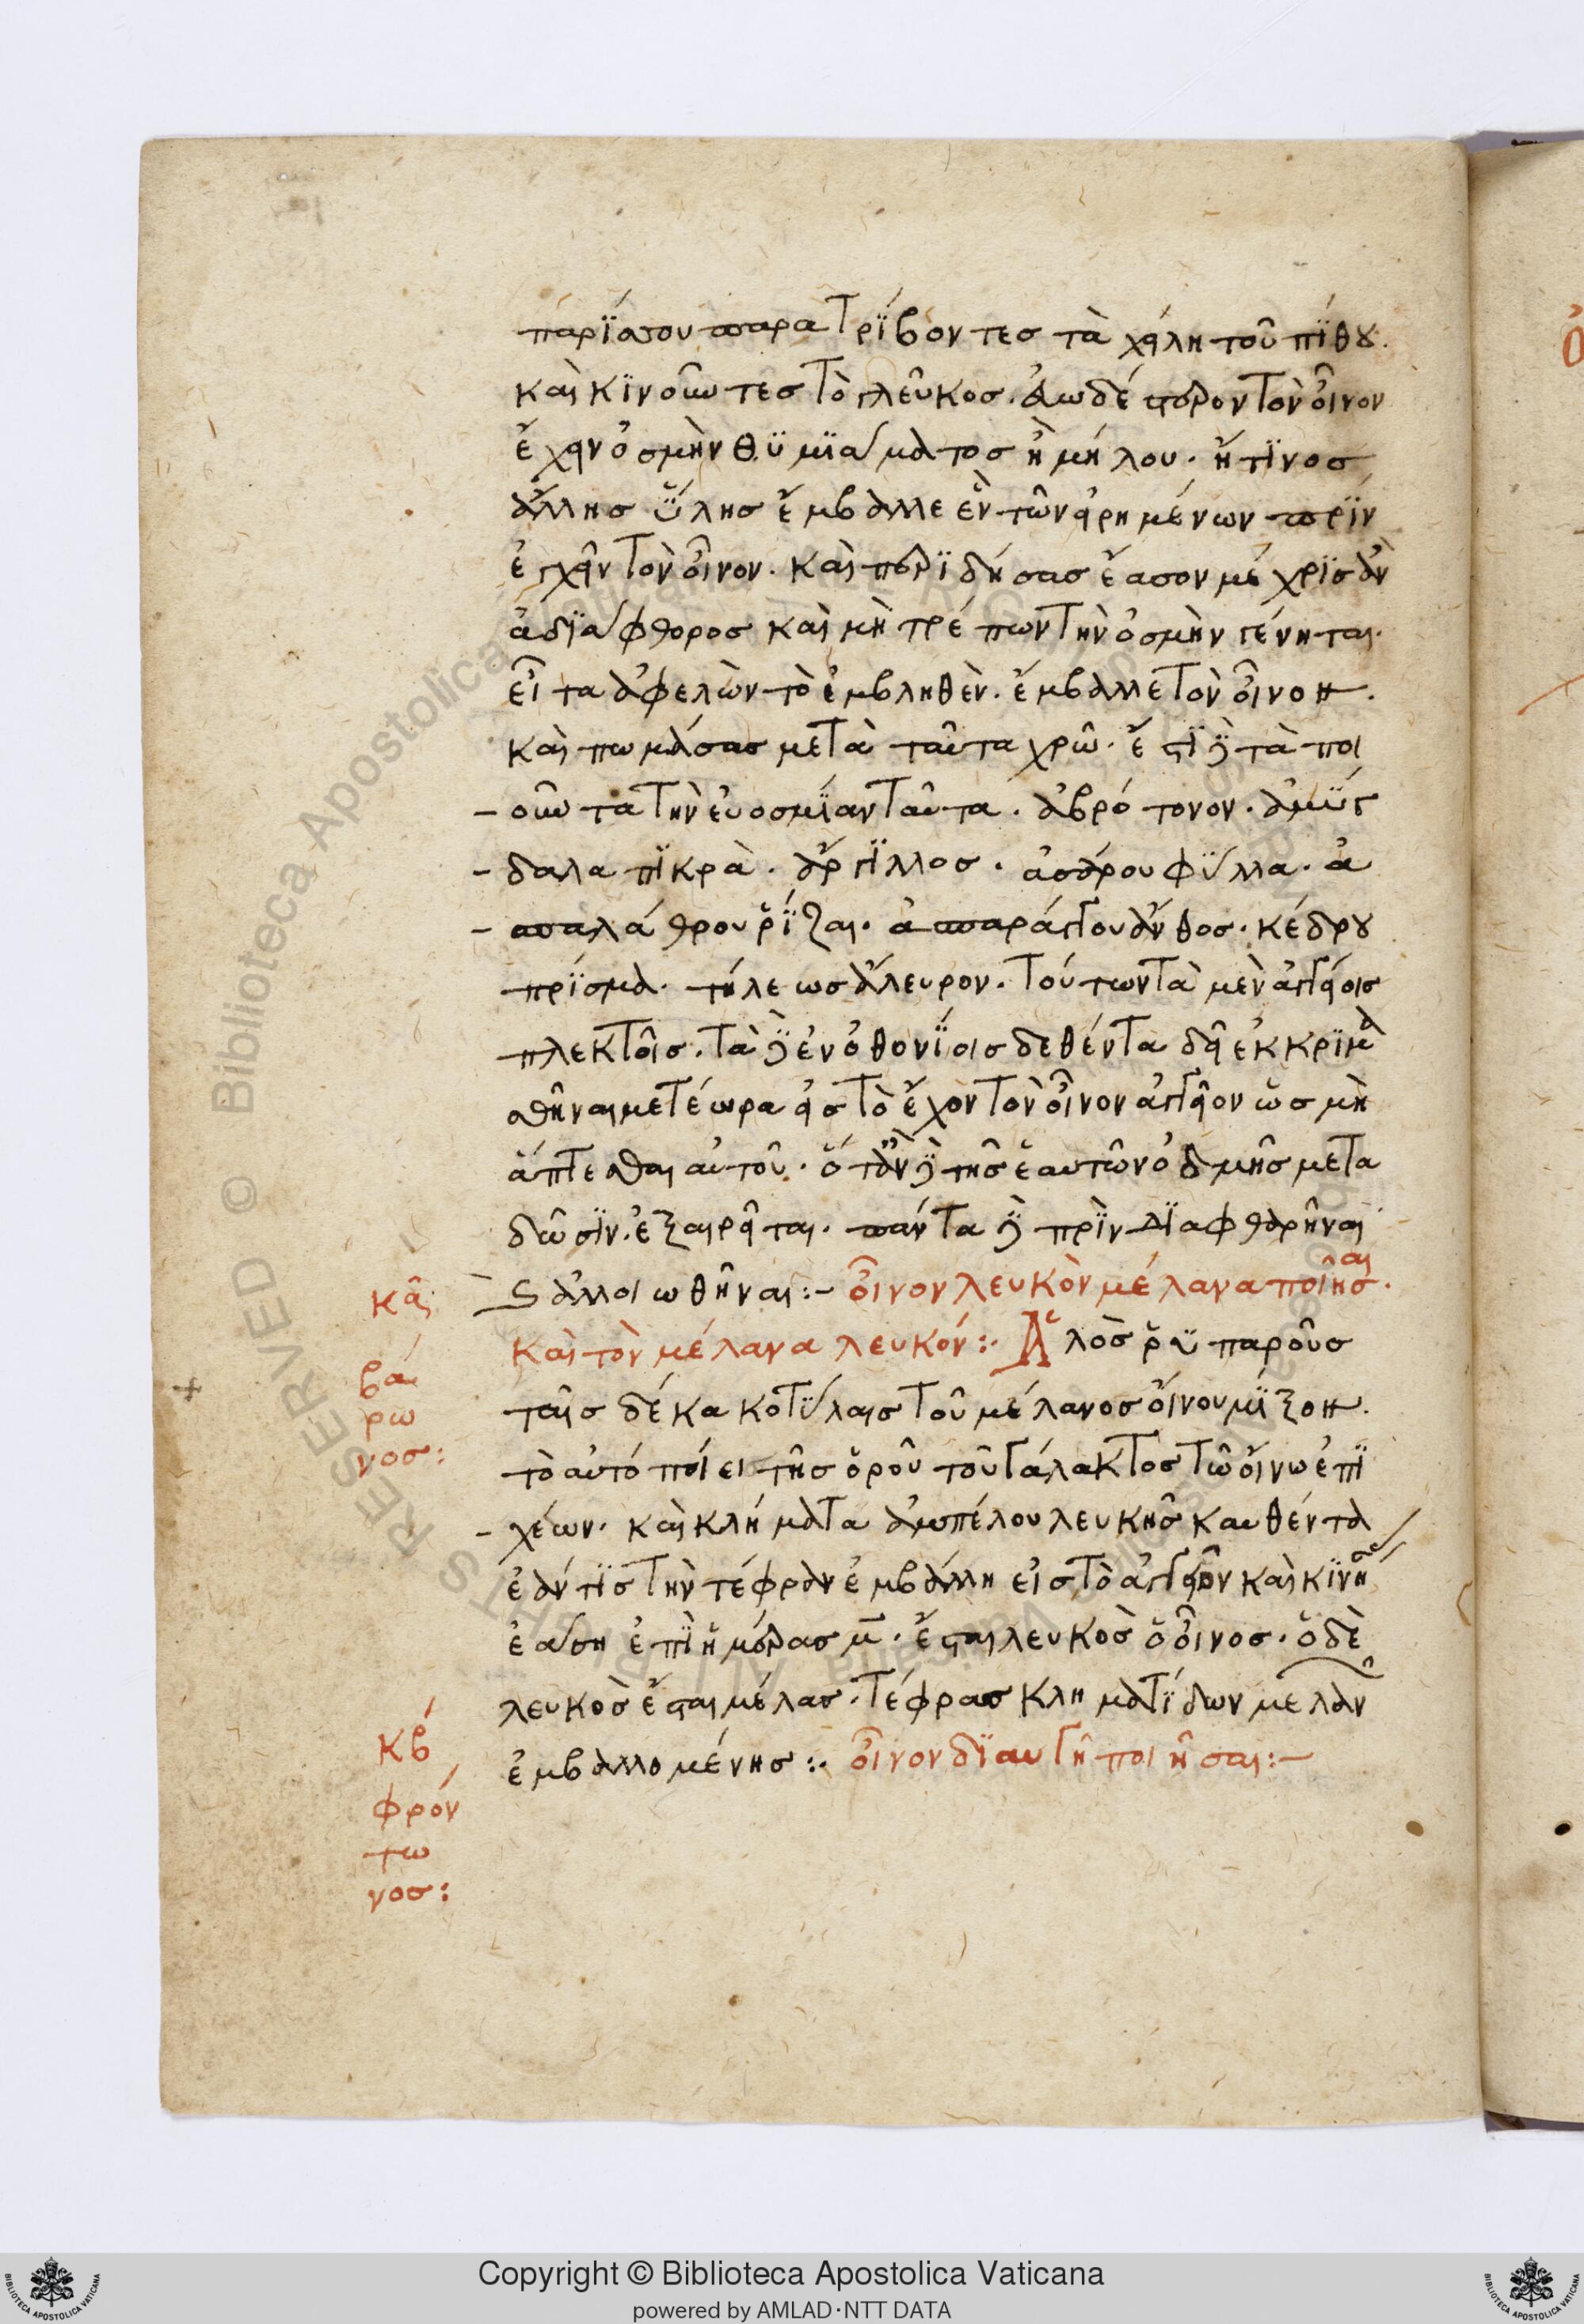 παρΐσου παρατρΐβοντες τὰ χείλη τοῦ πΐθου.
καὶ κϊνοῦντες τὸ γλεῦκος. ἄλλως δέ ὕστερον τὸν οἶνον
ἔχειν ὀσμὴν θϋμϊάματος ἢ μήλου. ἤ τϊνος
ἄλλης ὕλης ἔμβαλλε ἓν τῶν εἰρημένων πρϊν
ἐγχεῖν τὸν οἶνον. καὶ περϊδήσας ἔασον μέχρϊς ἂν
ἀδϊάφθορος καὶ μὴ τρέπων τὴν ὀσμὴν γένηται.
εἶτα ἀφελὼν τὸ ἐμβληθὲν. ἔμβαλλε τὸν οἶνον.
καὶ πωμάσας μετὰ ταῦτα χρῶ. ἔστϊ δὲ τὰ ποι
οῦντα τὴν εὐοσμΐαν ταῦτα. ἀβρότονον. ἀμϋγ
δαλα πϊκρὰ. ἄργϊλλος. ἀστέρου φΰλλα. ἀ
σπαλάθρου ῥΐζαι. ἀσπαράγου ἄνθος. κέδρου
πρΐσμα. τήλεως ἄλευρον. τούτων τὰ μὲν ἀγγείοις
πλεκτοῖς. τὰ δὲ ἐν ὀθονΐοις δεθέντα δεῖ ἐκκρϊμα
σθῆναι μετέωρα εἰς τὸ ἔχον τὸν οἶνον ἀγγεῖον ὡς μὴ
ἅπτεσθαι αὐτοῦ. ὅταν δὲ τῆς ἑαυτῶν ὀδμῆς μετα
δῶσϊν. ἐξαιρεῖται. πάντα δὲ πρϊν δϊαφθαρῆναι
ἢ ἀλλοιωθῆναι:- οἶνον λευκὸν μέλανα ποιῆσαι.
κᾱ
βά
ρω
νος:
καὶ τὸν μέλανα λευκόν:. Ἁλὸς ῥϋπαροῦς
ταῖς δέκα κοτΰλαις τοῦ μέλανος οἴνου μΐξον.
τὸ αὐτό ποίει τῆς ὀροῦ τοῦ γάλακτος τῷ οἴνῳ ἐπϊ
χέων. καὶ κλήματα ἀμπέλου λευκῆς καυθέντα
ἐάν τϊς τὴν τέφραν ἐμβάλλῃ εἰς τὸ ἀγγεῖον καὶ κϊνή
ἐάσῃ ἐπϊ ἡμέρας μ̄. ἔσται λευκὸς ὁ οἶνος. ὁ δὲ
λευκὸς ἔσται μέλας. τέφρας κληματΐδων μελαν
ἐμβαλλομένης:. οἶνον δϊαυγῆ ποιῆσαι:-
κβ
φρόν
τω
νος:
Copyright © Biblioteca Apostolica Vaticana
powered by AMLAD·NTT DATA